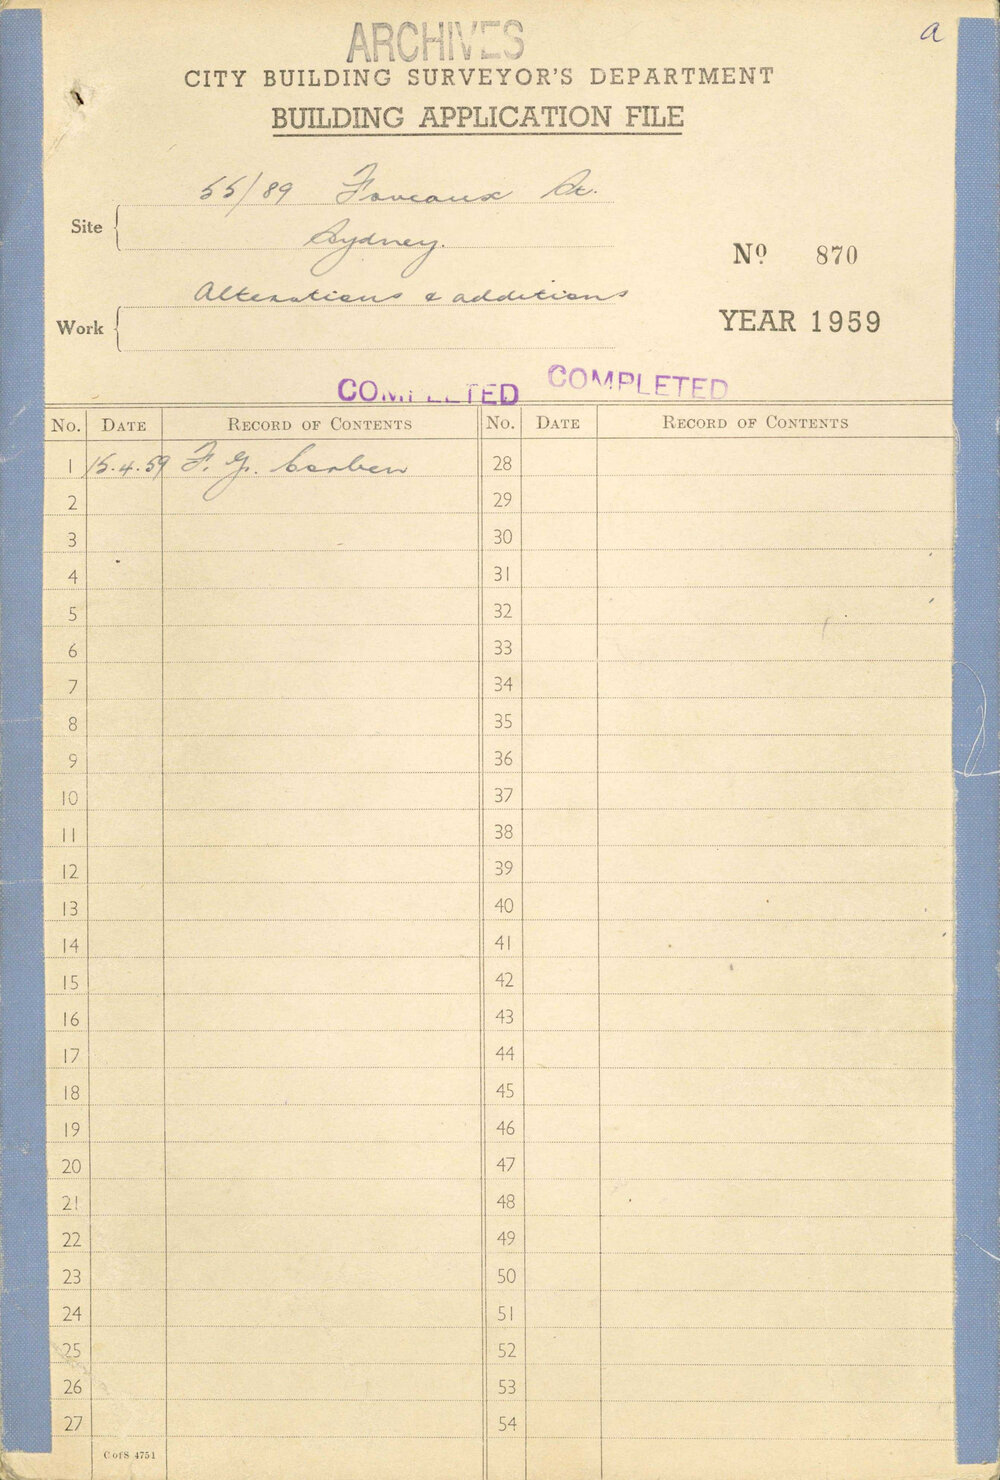 a
ARCHIVES
CITY BUILDING SURVEYOR'S DEPARTMENT
BUILDING APPLICATION FILE
Site
55/89 Foveaux St.
Sydney.
No 870
Work
Alterations & additions
YEAR 1959
COMPLETED COMPLETED
No. DATE RECORD OF CONTENTS No. DATE RECORD OF CONTENTS
1 15.4.59 F. G. Corben 28
2 29
3 30
4 31
5 32
6 33
7 34
8 35
9 36
10 37
11 38
12 39
13 40
14 41
15 42
16 43
17 44
18 45
19 46
20 47
21 48
22 49
23 50
24 51
25 52
26 53
27 54
C of S 4751